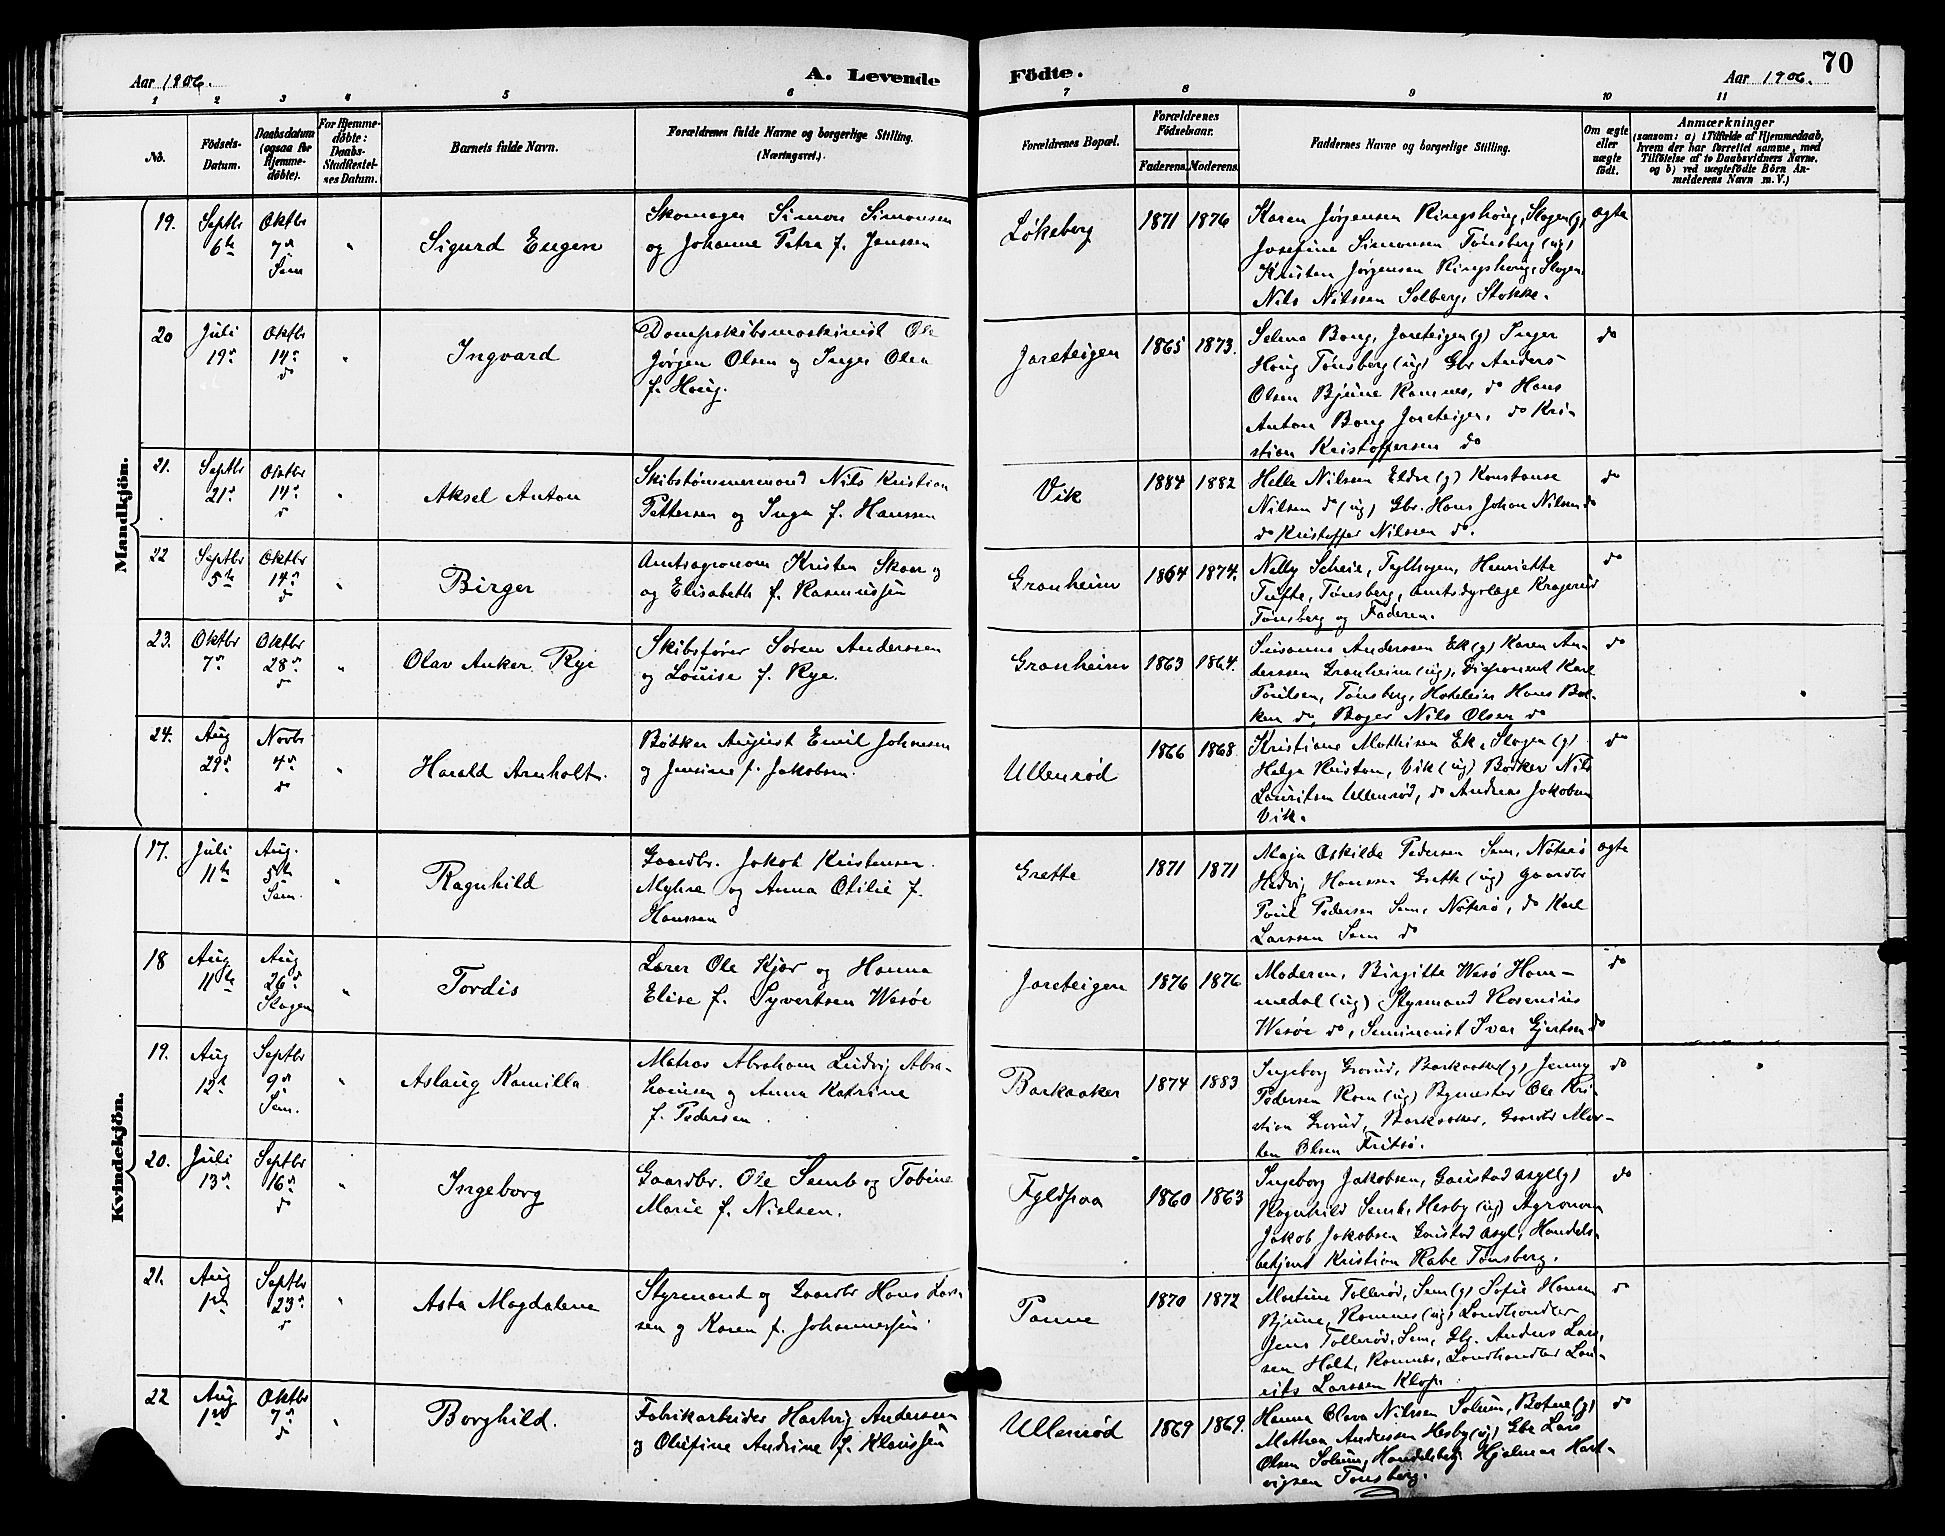 Aar 1906.
A. Levende Födte.
Aar 1906.
70
1 2 3 4 5 6 7 8 9 10 11
No.
Födsels-Datum.
Daabsdatum (ogsaa for Hjemme-døbte).
For Hjemme-døbte: Daabs-Stadfæstel-ses Datum.
Barnets fulde Navn.
Forældrenes fulde Navne og borgerlige Stilling.
(Næringsvei.)
Forældrenes Bopæl.
Forældrenes Födselsaar.
Faderens. Moderens.
Faddernes Navne og borgerlige Stilling.
Om ægte eller uægte födt.
Anmærkninger
(saasom: a) i Tilfælde af Hjemmedaab, hvem der har forrettet samme, med Tilföielse af to Daabsvidners Navne, og b) ved uægtefödte Börn Anmelderens Navn m. V.)
Mandkjön.
19. Septbr 6te Oktbr 7de Sem " Sigurd Eugen
Skomager Simon Simonsen
og Johanne Petra f. Jonssen
Løkeberg 1871 1876
Karen Jørgensen Ringshoug, Slagen (g)
Josefine Simonsen Tønsberg (ug)
Kristen Jørgensen Ringshoug, Slagen
Nils Nilssen Solberg, Stokke.
ægte
20 Juli 19de Oktbr 14de do " Ingvard
Dampskibsmaskinist Ole
Jørgen Olsen og Inger Olea
f. Houg.
Jareteigen 1865 1873.
Selma Bong, Jareteigen (g) Inger
Houg Tønsberg (ug) Gbr Anders
Olsen Bjune Ramnes, do Hans
Anton Bong Jareteigen, do Kri-
stian Kristoffersen do
do
21. Septbr 21de Oktbr 14de d " Aksel Anton
Skibstømmermand Nils Kristian
Pettersen og Inga f. Hanssen
Vik 1884 1882
Helle Nilsen Eldre (g) Konstanse
Nilsen do (ug) Gbr. Hans Johan Nilsen do
do Kristoffer Nilssen do.
do
22 Septbr 5te Oktbr 14de do " Birger
Amtsagronom Kristen Skaar og
og Elisabeth f. Rasmussen
Granheim 1864 1874.
Nelly Scheie, Fylhagen, Henriette
Tufte, Tønsberg, Amtsdyrlæge Kragerud
Tønsberg og Faderen.
do
23. Oktbr 7de Oktbr 28de do " Olav Anker Rye
Skibsfører Søren Anderssen
og Louise f. Rye.
Granheim 1863 1864.
Susanne Anderssen Ek (g) Karen An-
derssen Granheim (ug), Disponent Karl
Poulsen, Tønsberg, Hoteleier Hans Bak-
ken do, Bager Nils Olsen do
do
24. Aug 29de Novbr 4de do " Harald Arnholt.
Bødker August Emil Johansen
og Jensine f. Jakobsen.
Ullenrød 1866 1868
Kristiane Mathisen Ek, Slagen (g)
Helga Kristan, Vik (ug) Bødker Nils
Lauritsen Ullenrød, do Andreas Jakobsen
Vik.
do
Kvindekjön.
17. Juli 11te Aug. 5te Sem. " Ragnhild
Gaardbr. Jakob Kristensen
Myhre og Anna Otilie f.
Hanssen
Grette 1871 1871
Maja Oskilde Pedersen Sem, Nøterø
Hedvig Hanssen Grette (ug) Gaardbr
Poul Pedersen Sem, Nøterø, do Karl
Larssen Sem do
ægte
18 Aug 11te Aug 26de Slagen " Tordis
Lærer Ole Kjær og Hanna
Elise f. Syvertsen Wesøe
Jareteigen 1876 1876
Moderen, Birgitte Wesø Hom-
medal (ug) Styrmand Rosenius
Wesøe do, Seminarist Ivar Gjertsen do
do
19. Aug 12te Septbr 9de Sem. " Aslaug Kamilla
Matros Abraham Ludvig Abra-
hamsen og Anna Katrine
f. Pedersen
Barkaaker 1874 1883
Ingeborg Grorud, Barkaaker (g) Jenny
Pedersen Rom (ug) Bymester Ole Kri-
stian Grorud, Barkaaker, Gaardbr Mor-
ten Olsen Fritsø.
do
20. Juli 13de Septbr 16de do " Ingeborg
Gaardbr. Ole Semb og Tobine
Marie f. Nielsen.
Fyldpaa 1860 1863
Ingeborg Jakobsen, Gaustad asyl (g)
Ragnhild Semb, Hesby (ug) Agronom
Jakob Jakobsen Gaustad Asyl, Handels-
betjent Kristian Rabe Tønsberg.
do
21. Aug 1ste Septbr 23de d " Asta Magdalene
Styrmand og Gaardbr Hans Lars-
sen og Karen f. Johannessen.
Panne 1870 1872
Martine Tollerød, Sem (g) Sofie Hansen
Bjune, Ramnes (ug) Landhandler
Jens Tollerød, Sem, Gbr. Anders Lars-
sen Holt, Ramnes, Landhandler Lau-
rits Larssen Klop.
d
22 Aug 1ste Oktbr 7de d " Borghild.
Fabrikarbeider Hartvig Anderssen
og Olufine Andrine f. Klaussen
Ullenrød 1869 1869.
Hanna Olava Nilssen Solum, Botne (g)
Mathea Anderssen Hesby (ug) Gbr Lars
Olsen Solum, Handelsbetj. Hjalmar Hart-
vigsen Tønsberg.
do